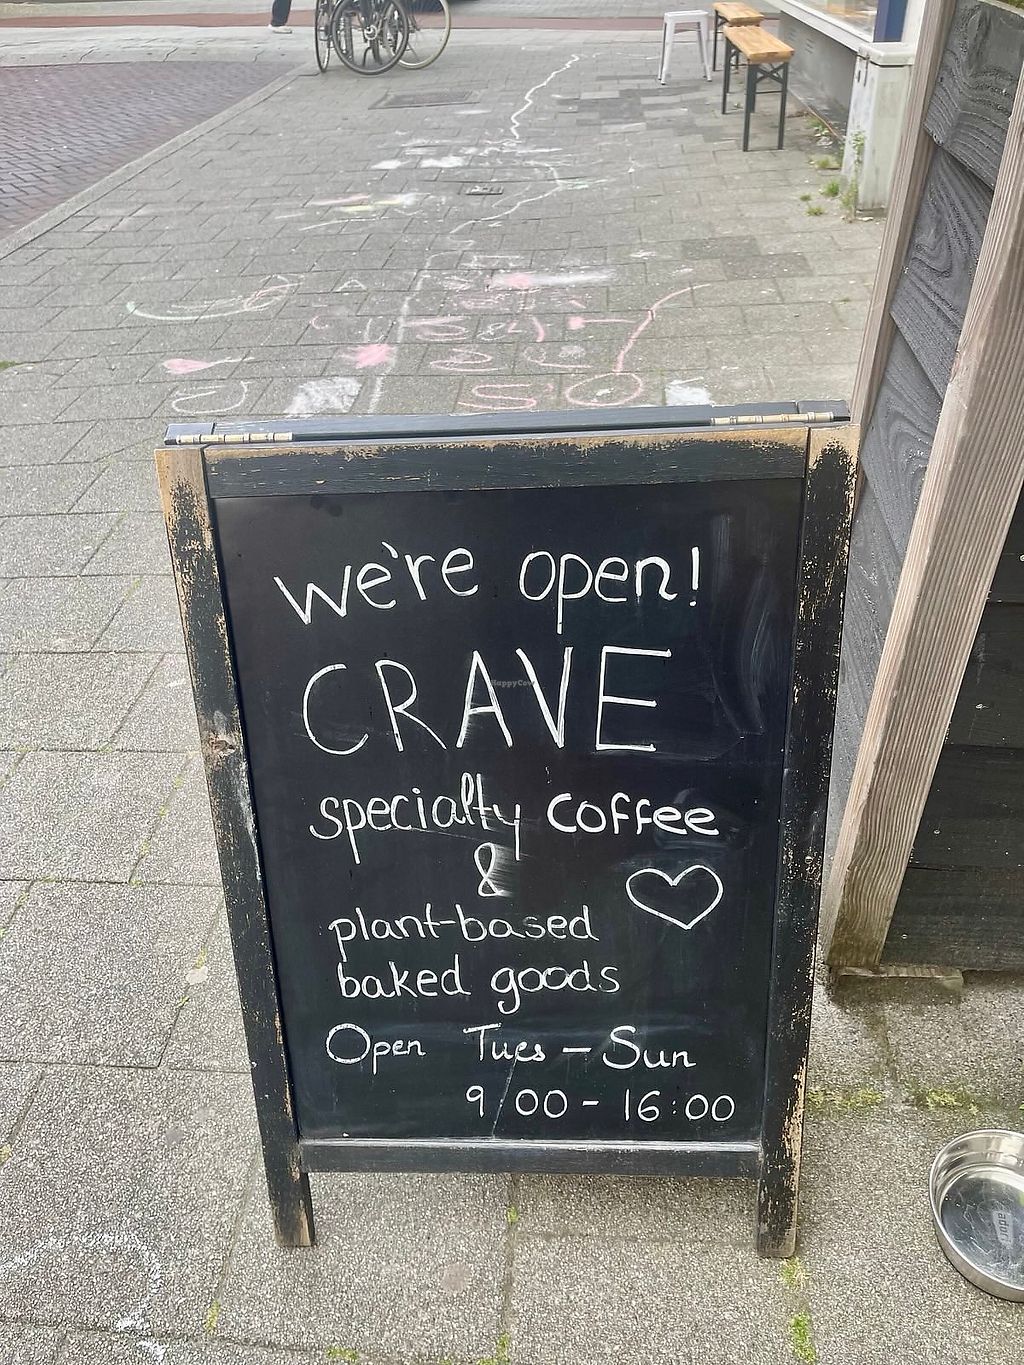 we're open!
CRAVE
HappyCow
specialty coffee
&
plant-based
baked goods
Open Tues - Sun
9 00 - 16:00